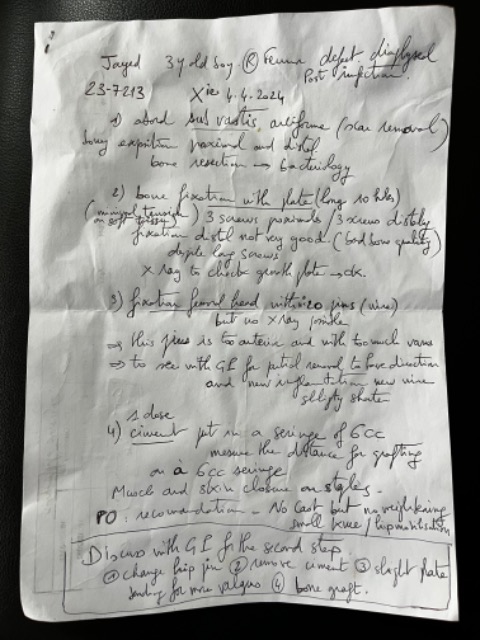 Jayed 3 y old boy (R) Femur defect diaphyseal
Post infection.
23-7213 Xie 4.4.2024
1) abord sub vastis (scar removal)
bony exposition proximal and distal
bone resection → bacteriology
2) bone fixation with plate (long 10 holes)
(minimal tension on soft tissue) 3 screws proximals / 3 screws distaly
fixation distl not very good. (bad bone quality)
despite long screws
X ray to check growth plate → ok.
3) fixation femoral head with 20 pins (wire)
but no X ray possible
⇒ this pins is too anterior and with too much varus
⇒ to see with GE for removal to have direction
and new implantation new wire
slighty shorter
1 dose
4) ciment put in a seringe of 6cc
mesure the distance for grafting
on a 6cc seringe
Muscle and skin closure on staples.
PO : recomandation - No cast but no weightbearing
small knee / hip mobilisation
Discuss with GE for the second step.
① change hip pin ② remove cement ③ slight plate
bending for more valgus ④ bone graft.